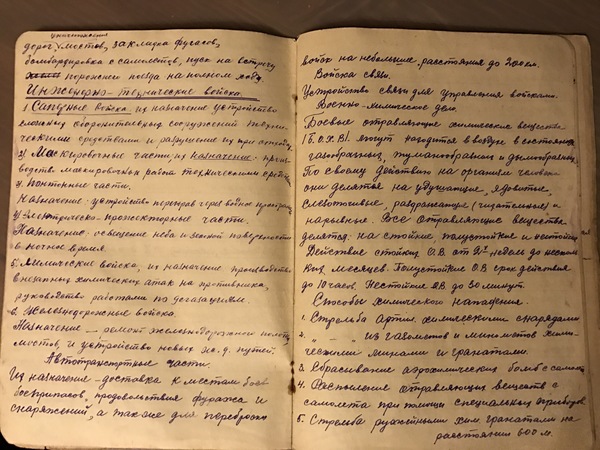 уничтожения
дорог, мостов, закладка фугасов,
бомбардировка с самолетов, пуск на встречу
порожнего поезда на полном ходу.
Инженерно-технические войска.
1. Саперные войска, их назначение устройство
сложных оборонительных сооружений техни-
ческими средствами и разрушение их при отходе
2) Маскировочные части, их назначение: произ-
водство маскировочных работ техническими средств.
3) Понтонные части.
Назначение: устройство переправ через водные преграды
4) Электрическо-прожекторные части.
Назначение: освещение неба и земной поверхности
в ночное время.
5. Химические войска, их назначение производство
внезапных химических атак на противника,
руководство работами по дегазациям.
6. Железнодорожные войска.
Назначение — ремонт железнодорожного полотна
мостов, и устройство новых ж.д. путей.
Автотранспортные части.
Их назначение – доставка к местам боев
боеприпасов, продовольствия фуража и
снаряжений, а также для переброски
войск на небольшие расстояния до 200 км.
Войска связи.
Устройство связи для управления войсками.
Военно-химическое дело.
Боевые отравляющие химические вещества
(Б.О.Х.В) могут находится в воздухе в состоянии
газообразных, туманообразных и дымообразных.
По своему действию на организм человека
они делятся на удушающие, ядовитые,
слезоточивые, раздражающие (чихательные) и
нарывные. Все отравляющие вещества
делятся: на стойкие, полустойкие и нестойкие
Действие стойких О.В. от 2х недель до несколь
ких месяцев. Полустойкие О.В. срок действия
до 10 часов. Нестойкие О.В. до 30 минут.
Способы химического нападения.
1. Стрельба артил. химическими снарядами
2. — " — из газометов и минометов хими-
ческими минами и гранатами.
3. Сбрасывание аэрохимических бомб с самолета
4. Распыление отравляющих веществ с
самолета при помощи специальных приборов.
5. Стрельба ружейными хим гранатами на
расстоянии 600 м.